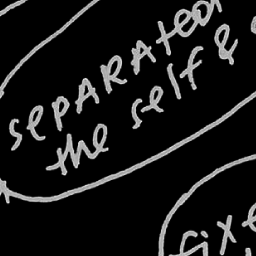 separateon
the self &
fixe